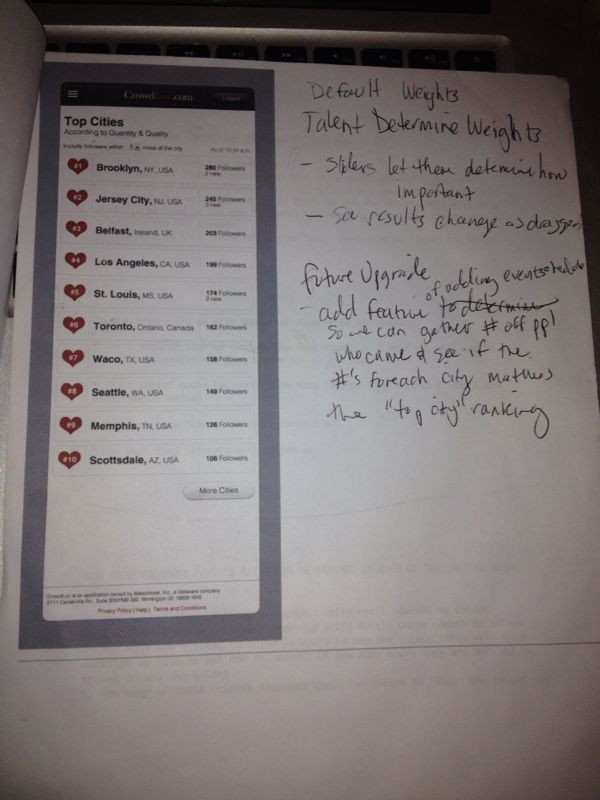 CrowdLuv.com
Logout
Top Cities
According to Quantity & Quality
Include followers within 5 miles of the city
As of 10:34 a.m.
#1 Brooklyn, NY, USA 280 Followers
2 new
#2 Jersey City, NJ, USA 245 Followers
3 new
#3 Belfast, Ireland, UK 203 Followers
#4 Los Angeles, CA, USA 199 Followers
#5 St. Louis, MS, USA 174 Followers
2 new
#6 Toronto, Ontario, Canada 162 Followers
#7 Waco, TX, USA 158 Followers
#8 Seattle, WA, USA 149 Followers
#9 Memphis, TN, USA 126 Followers
#10 Scottsdale, AZ, USA 106 Followers
More Cities
CrowdLuv is an application owned by iMatchbook, Inc., a Delaware company
2711 Centerville Rd., Suite 300/PMB 392, Wilmington DE 19808-1645
Privacy Policy | Help | Terms and Conditions
Default Weights
Talent Determine Weights
- Sliders let them determine how
important
- See results change as dragged
Future Upgrade
of adding events
- add feature to determine
So we can gather # off ppl
who came & see if the
#'s foreach city matches
the "top city" ranking